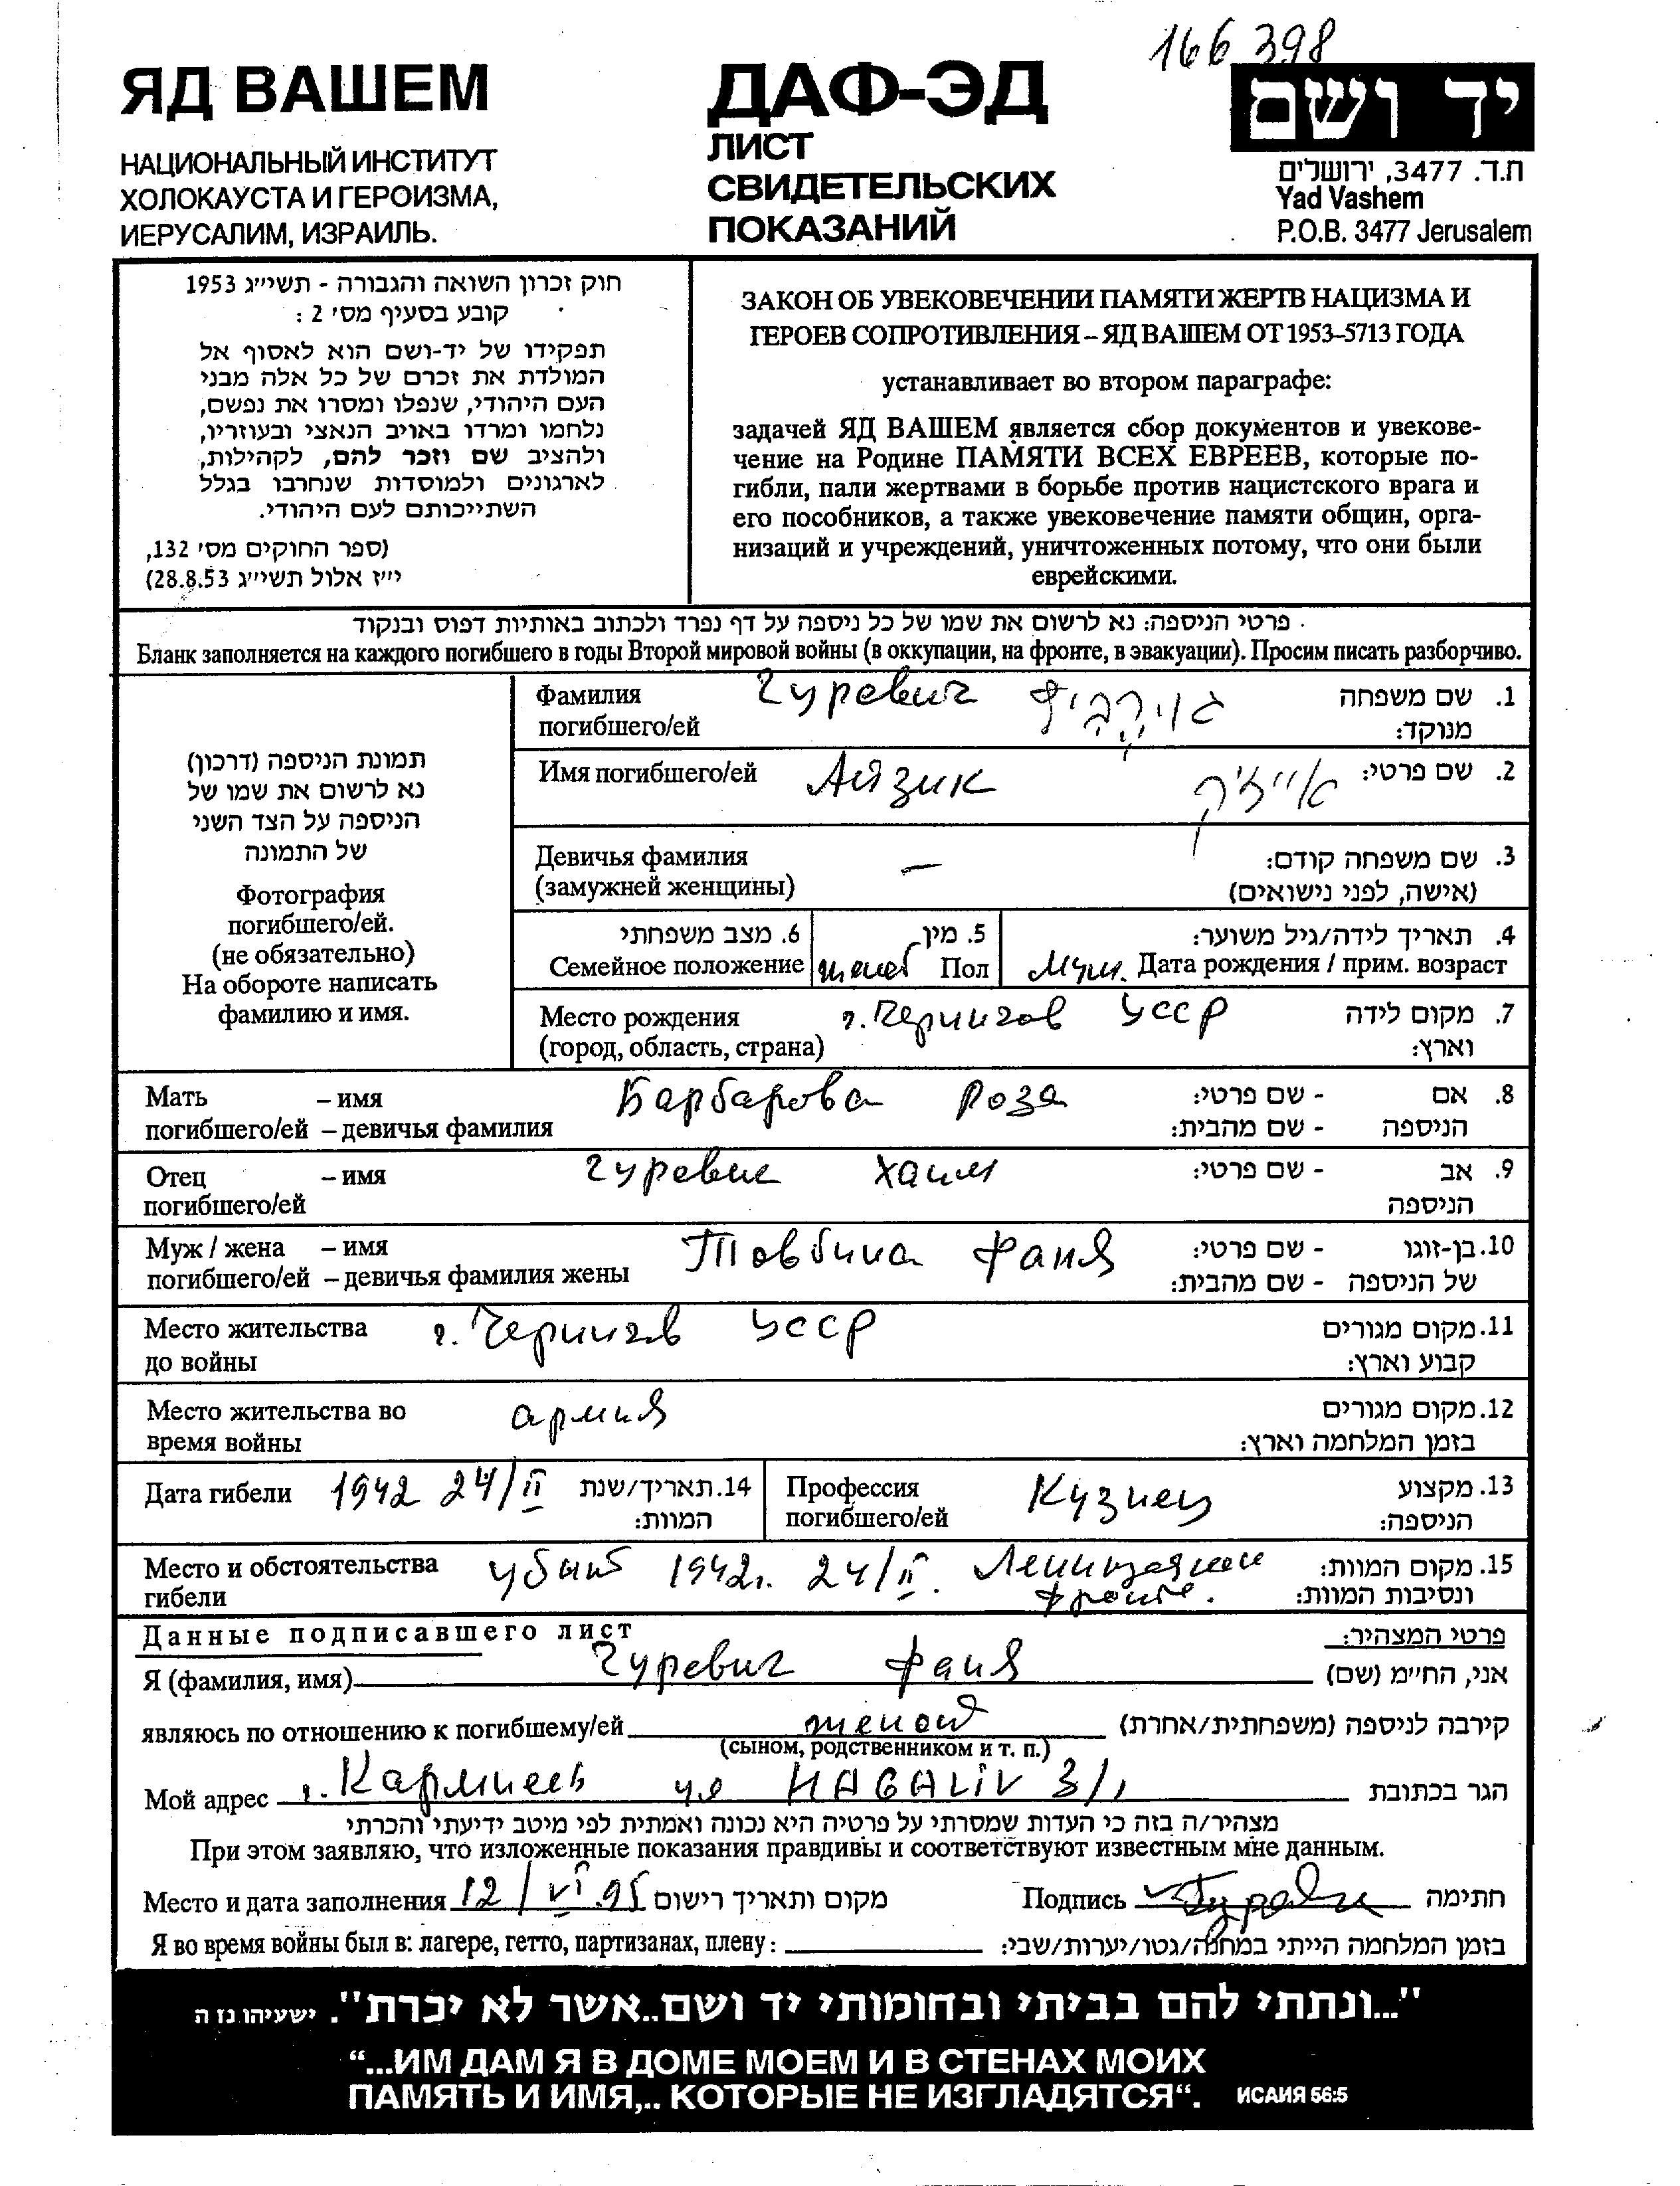 166 398
ЯД ВАШЕМ
НАЦИОНАЛЬНЫЙ ИНСТИТУТ
ХОЛОКАУСТА И ГЕРОИЗМА,
ИЕРУСАЛИМ, ИЗРАИЛЬ.
ДАФ-ЭД
ЛИСТ
СВИДЕТЕЛЬСКИХ
ПОКАЗАНИЙ
יד ושם
ת.ד. 3477, ירושלים
Yad Vashem
P.O.B. 3477 Jerusalem
חוק זכרון השואה והגבורה - תשי״ג 1953
קובע בסעיף מס׳ 2 :
תפקידו של יד-ושם הוא לאסוף אל
המולדת את זכרם של כל אלה מבני
העם היהודי, שנפלו ומסרו את נפשם,
נלחמו ומרדו באויב הנאצי ובעוזריו,
ולהציב שם וזכר להם, לקהילות,
לארגונים ולמוסדות שנחרבו בגלל
השתייכותם לעם היהודי.
(ספר החוקים מס׳ 132,
י״ז אלול תשי״ג 28.8.53)
ЗАКОН ОБ УВЕКОВЕЧЕНИИ ПАМЯТИ ЖЕРТВ НАЦИЗМА И
ГЕРОЕВ СОПРОТИВЛЕНИЯ – ЯД ВАШЕМ ОТ 1953–5713 ГОДА
устанавливает во втором параграфе:
задачей ЯД ВАШЕМ является сбор документов и увекове-
чение на Родине ПАМЯТИ ВСЕХ ЕВРЕЕВ, которые по-
гибли, пали жертвами в борьбе против нацистского врага и
его пособников, а также увековечение памяти общин, орга-
низаций и учреждений, уничтоженных потому, что они были
еврейскими.
פרטי הניספה: נא לרשום את שמו של כל ניספה על דף נפרד ולכתוב באותיות דפוס ובנקוד
Бланк заполняется на каждого погибшего в годы Второй мировой войны (в оккупации, на фронте, в эвакуации). Просим писать разборчиво.
תמונת הניספה (דרכון)
נא לרשום את שמו של
הניספה על הצד השני
של התמונה
Фотография
погибшего/ей.
(не обязательно)
На обороте написать
фамилию и имя.
Фамилия Гуревич גוירביץ 1. שם משפחה
погибшего/ей מנוקד:
Имя погибшего/ей Айзик אייזיק 2. שם פרטי:
Девичья фамилия — 3. שם משפחה קודם:
(замужней женщины) (אישה, לפני נישואים)
6. מצב משפחתי 5. מין 4. תאריך לידה/גיל משוער:
Семейное положение женат Пол Муж. Дата рождения / прим. возраст
Место рождения г. Чернигов УССР 7. מקום לידה
(город, область, страна) וארץ:
Мать – имя Барбарова Роза - שם פרטי: 8. אם
погибшего/ей – девичья фамилия - שם מהבית: הניספה
Отец – имя Гуревич Хаим - שם פרטי: 9. אב
погибшего/ей הניספה
Муж / жена – имя Товбина Фаня - שם פרטי: 10. בן-זוגו
погибшего/ей – девичья фамилия жены - שם מהבית: של הניספה
Место жительства г. Чернигов УССР 11. מקום מגורים
до войны קבוע וארץ:
Место жительства во армия 12. מקום מגורים
время войны בזמן המלחמה וארץ:
Дата гибели 1942 24/II 14. תאריך/שנת המוות:
Профессия погибшего/ей Кузнец 13. מקצוע הניספה:
Место и обстоятельства убит 1942г. 24/II. Ленинградском 15. מקום המוות:
гибели фронте. ונסיבות המוות:
Данные подписавшего лист פרטי המצהיר:
Я (фамилия, имя) Гуревич Фаня אני, החי״מ (שם)
являюсь по отношению к погибшему/ей женой קירבה לניספה (משפחתית/אחרת)
(сыном, родственником и т. п.)
Мой адрес г. Кармиель ул HAGALIV 3/1 הגר בכתובת
מצהיר/ה בזה כי העדות שמסרתי על פרטיה היא נכונה ואמתית לפי מיטב ידיעתי והכרתי
При этом заявляю, что изложенные показания правдивы и соответствуют известным мне данным.
Место и дата заполнения 12/VI.95 מקום ותאריך רישום Подпись Гуревич חתימה
Я во время войны был в: лагере, гетто, партизанах, плену: בזמן המלחמה הייתי במחנה/גטו/יערות/שבי:
"...ונתתי להם בביתי ובחומותי יד ושם..אשר לא יכרת". ישעיהו נז ה
“...ИМ ДАМ Я В ДОМЕ МОЕМ И В СТЕНАХ МОИХ
ПАМЯТЬ И ИМЯ,.. КОТОРЫЕ НЕ ИЗГЛАДЯТСЯ“. ИСАИЯ 56:5